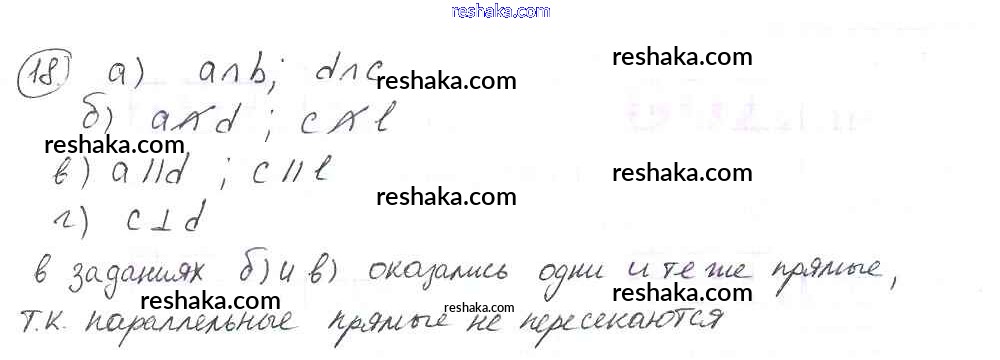 reshaka.com
18. а) a∩b; d∩c reshaka.com
б) a∩̸d ; c∩̸l
reshaka.com reshaka.com
в) a∥d ; c∥l reshaka.com
reshaka.com
г) c⊥d
в заданиях б) и в) оказались одни и те же прямые,
reshaka.com reshaka.com reshaka.com
т.к. параллельные прямые не пересекаются